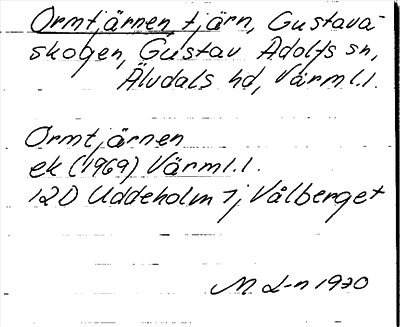 Ormtjärnen tjärn, Gustava-
skogen, Gustav Adolfs sn,
Älvdals hd, Värml.l.
Ormtjärnen
ek (1969) Värml.l.
12D Uddeholm 7j Vålberget
M L-n 1970